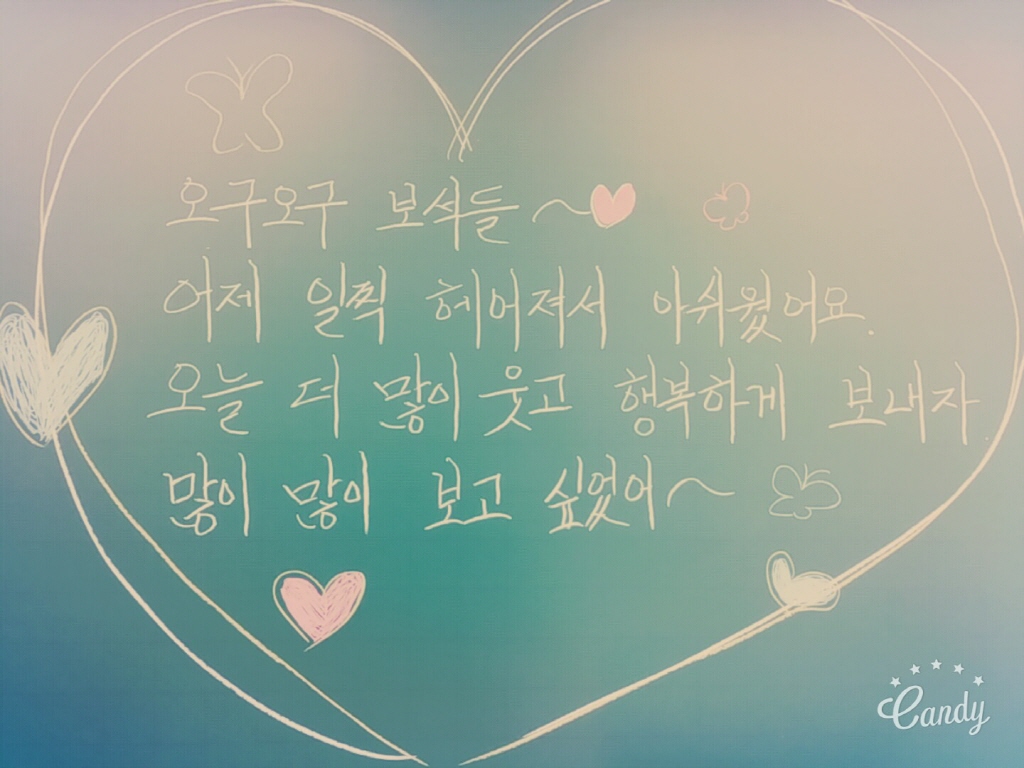 오구오구 보석들~
어제 일찍 헤어져서 아쉬웠어요.
오늘 더 많이 웃고 행복하게 보내자
많이 많이 보고 싶었어~
Candy